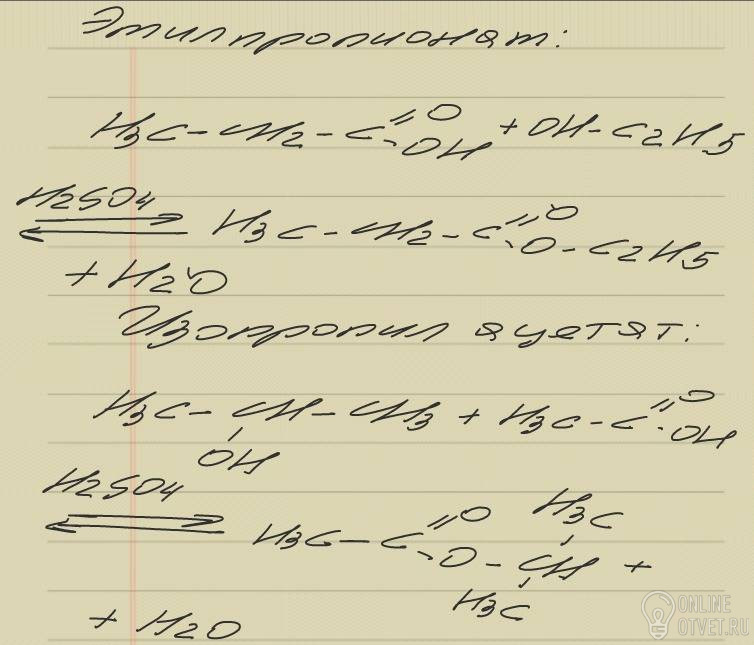 Этилпропионят:
O
H3C-CH2-C + OH-C2H5
OH
H2SO4
O
H3C-CH2-C
O-C2H5
+ H2O
Изопропил яцетят:
O
H3C-CH-CH3 + H3C-C
OH
OH
H2SO4
H3C
O
H3C-C
O-CH +
H3C
+ H2O
ONLINE
OTVET.RU